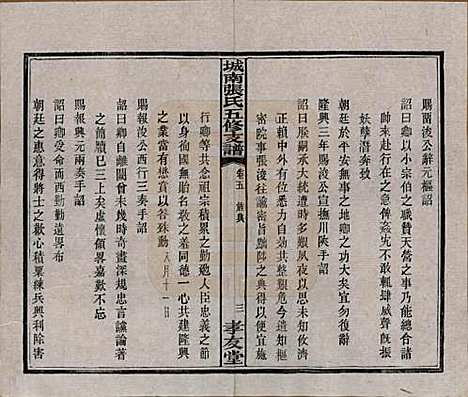 賜南浚公辭元樞詔
詔曰卿以小宗伯之職贊天營之事乃能總合諸
帥來赴行在之急俾姦宄不敢輒肆威聲旣振
妖孽潛奔致
朝廷於平安無事之地卿之功大矣宜勿復辭
隆興三年賜浚公宣撫川陝手詔
詔曰朕嗣承大統遭時多艱夙夜以思未知攸濟
正賴中外有位悉力自效共整艱危今遣知樞
密院事張浚往諭密旨黜陟之典得以便宜施
城南張氏五修支譜
卷五
三
孝友堂
行卿等其念祖宗積累之勤勉人臣忠義之節
以身徇國無貽名敎之羞同德一心共建隆興
之業當有懋賞以答殊勳八月十一日
賜報浚公西行三奏手詔
詔曰卿自離闕曾未幾時奇畫深規忠言讜論著
之簡牘已三上矣慮懷領畧嘉歎不忘
賜報興元布惠手詔
詔曰卿受命而西勤勤遺畧布
朝廷之惠意得將士之歡心積粟練兵興利除害